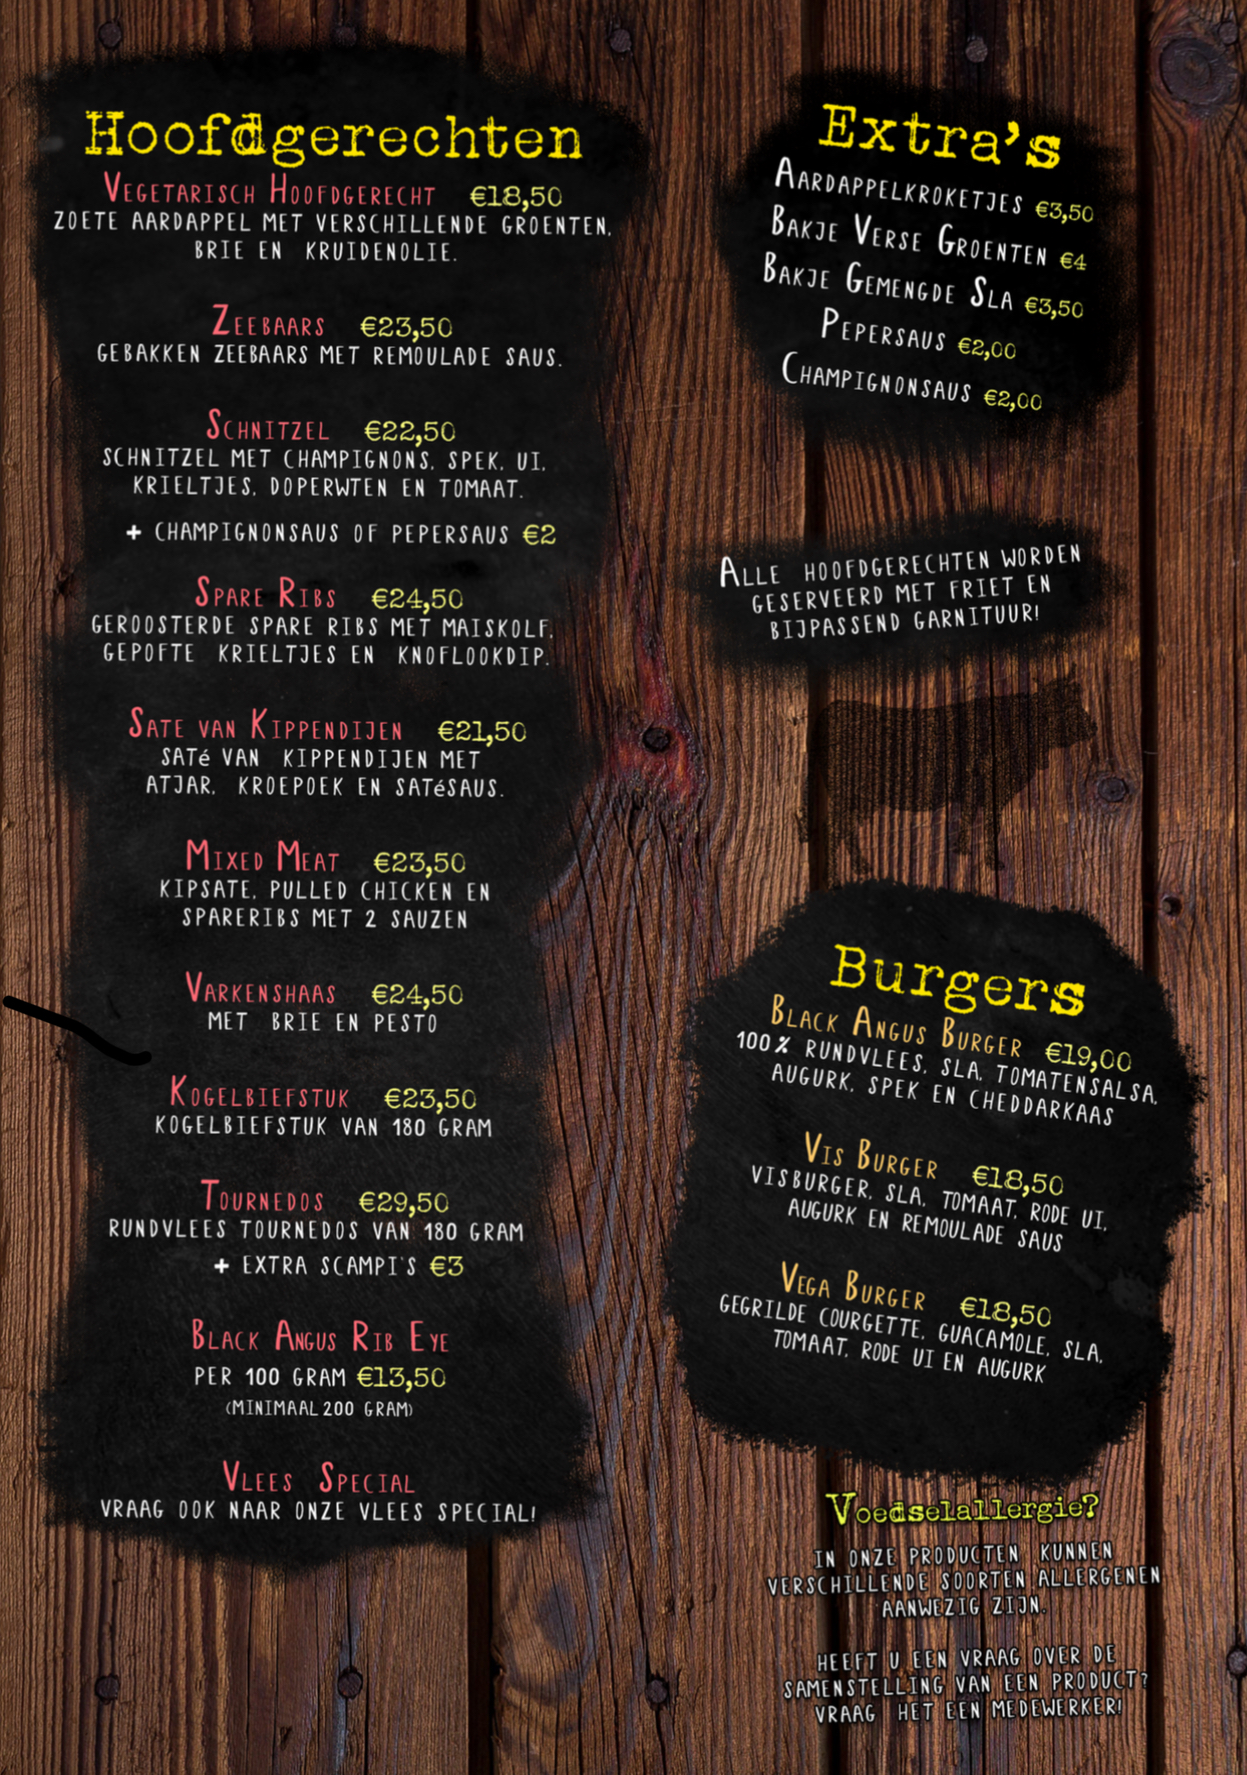 Hoofdgerechten
VEGETARISCH HOOFDGERECHT €18,50
ZOETE AARDAPPEL MET VERSCHILLENDE GROENTEN,
BRIE EN KRUIDENOLIE.
ZEEBAARS €23,50
GEBAKKEN ZEEBAARS MET REMOULADE SAUS.
SCHNITZEL €22,50
SCHNITZEL MET CHAMPIGNONS, SPEK, UI,
KRIELTJES, DOPERWTEN EN TOMAAT.
+ CHAMPIGNONSAUS OF PEPERSAUS €2
SPARE RIBS €24,50
GEROOSTERDE SPARE RIBS MET MAISKOLF,
GEPOFTE KRIELTJES EN KNOFLOOKDIP.
SATE VAN KIPPENDIJEN €21,50
SATé VAN KIPPENDIJEN MET
ATJAR, KROEPOEK EN SATéSAUS.
MIXED MEAT €23,50
KIPSATE, PULLED CHICKEN EN
SPARERIBS MET 2 SAUZEN
VARKENSHAAS €24,50
MET BRIE EN PESTO
KOGELBIEFSTUK €23,50
KOGELBIEFSTUK VAN 180 GRAM
TOURNEDOS €29,50
RUNDVLEES TOURNEDOS VAN 180 GRAM
+ EXTRA SCAMPI'S €3
BLACK ANGUS RIB EYE
PER 100 GRAM €13,50
(MINIMAAL 200 GRAM)
VLEES SPECIAL
VRAAG OOK NAAR ONZE VLEES SPECIAL!
Extra's
AARDAPPELKROKETJES €3,50
BAKJE VERSE GROENTEN €4
BAKJE GEMENGDE SLA €3,50
PEPERSAUS €2,00
CHAMPIGNONSAUS €2,00
ALLE HOOFDGERECHTEN WORDEN
GESERVEERD MET FRIET EN
BIJPASSEND GARNITUUR!
Burgers
BLACK ANGUS BURGER €19,00
100% RUNDVLEES, SLA, TOMATENSALSA,
AUGURK, SPEK EN CHEDDARKAAS
VIS BURGER €18,50
VISBURGER, SLA, TOMAAT, RODE UI,
AUGURK EN REMOULADE SAUS
VEGA BURGER €18,50
GEGRILDE COURGETTE, GUACAMOLE, SLA,
TOMAAT, RODE UI EN AUGURK
Voedselallergie?
IN ONZE PRODUCTEN KUNNEN
VERSCHILLENDE SOORTEN ALLERGENEN
AANWEZIG ZIJN.
HEEFT U EEN VRAAG OVER DE
SAMENSTELLING VAN EEN PRODUCT?
VRAAG HET EEN MEDEWERKER!